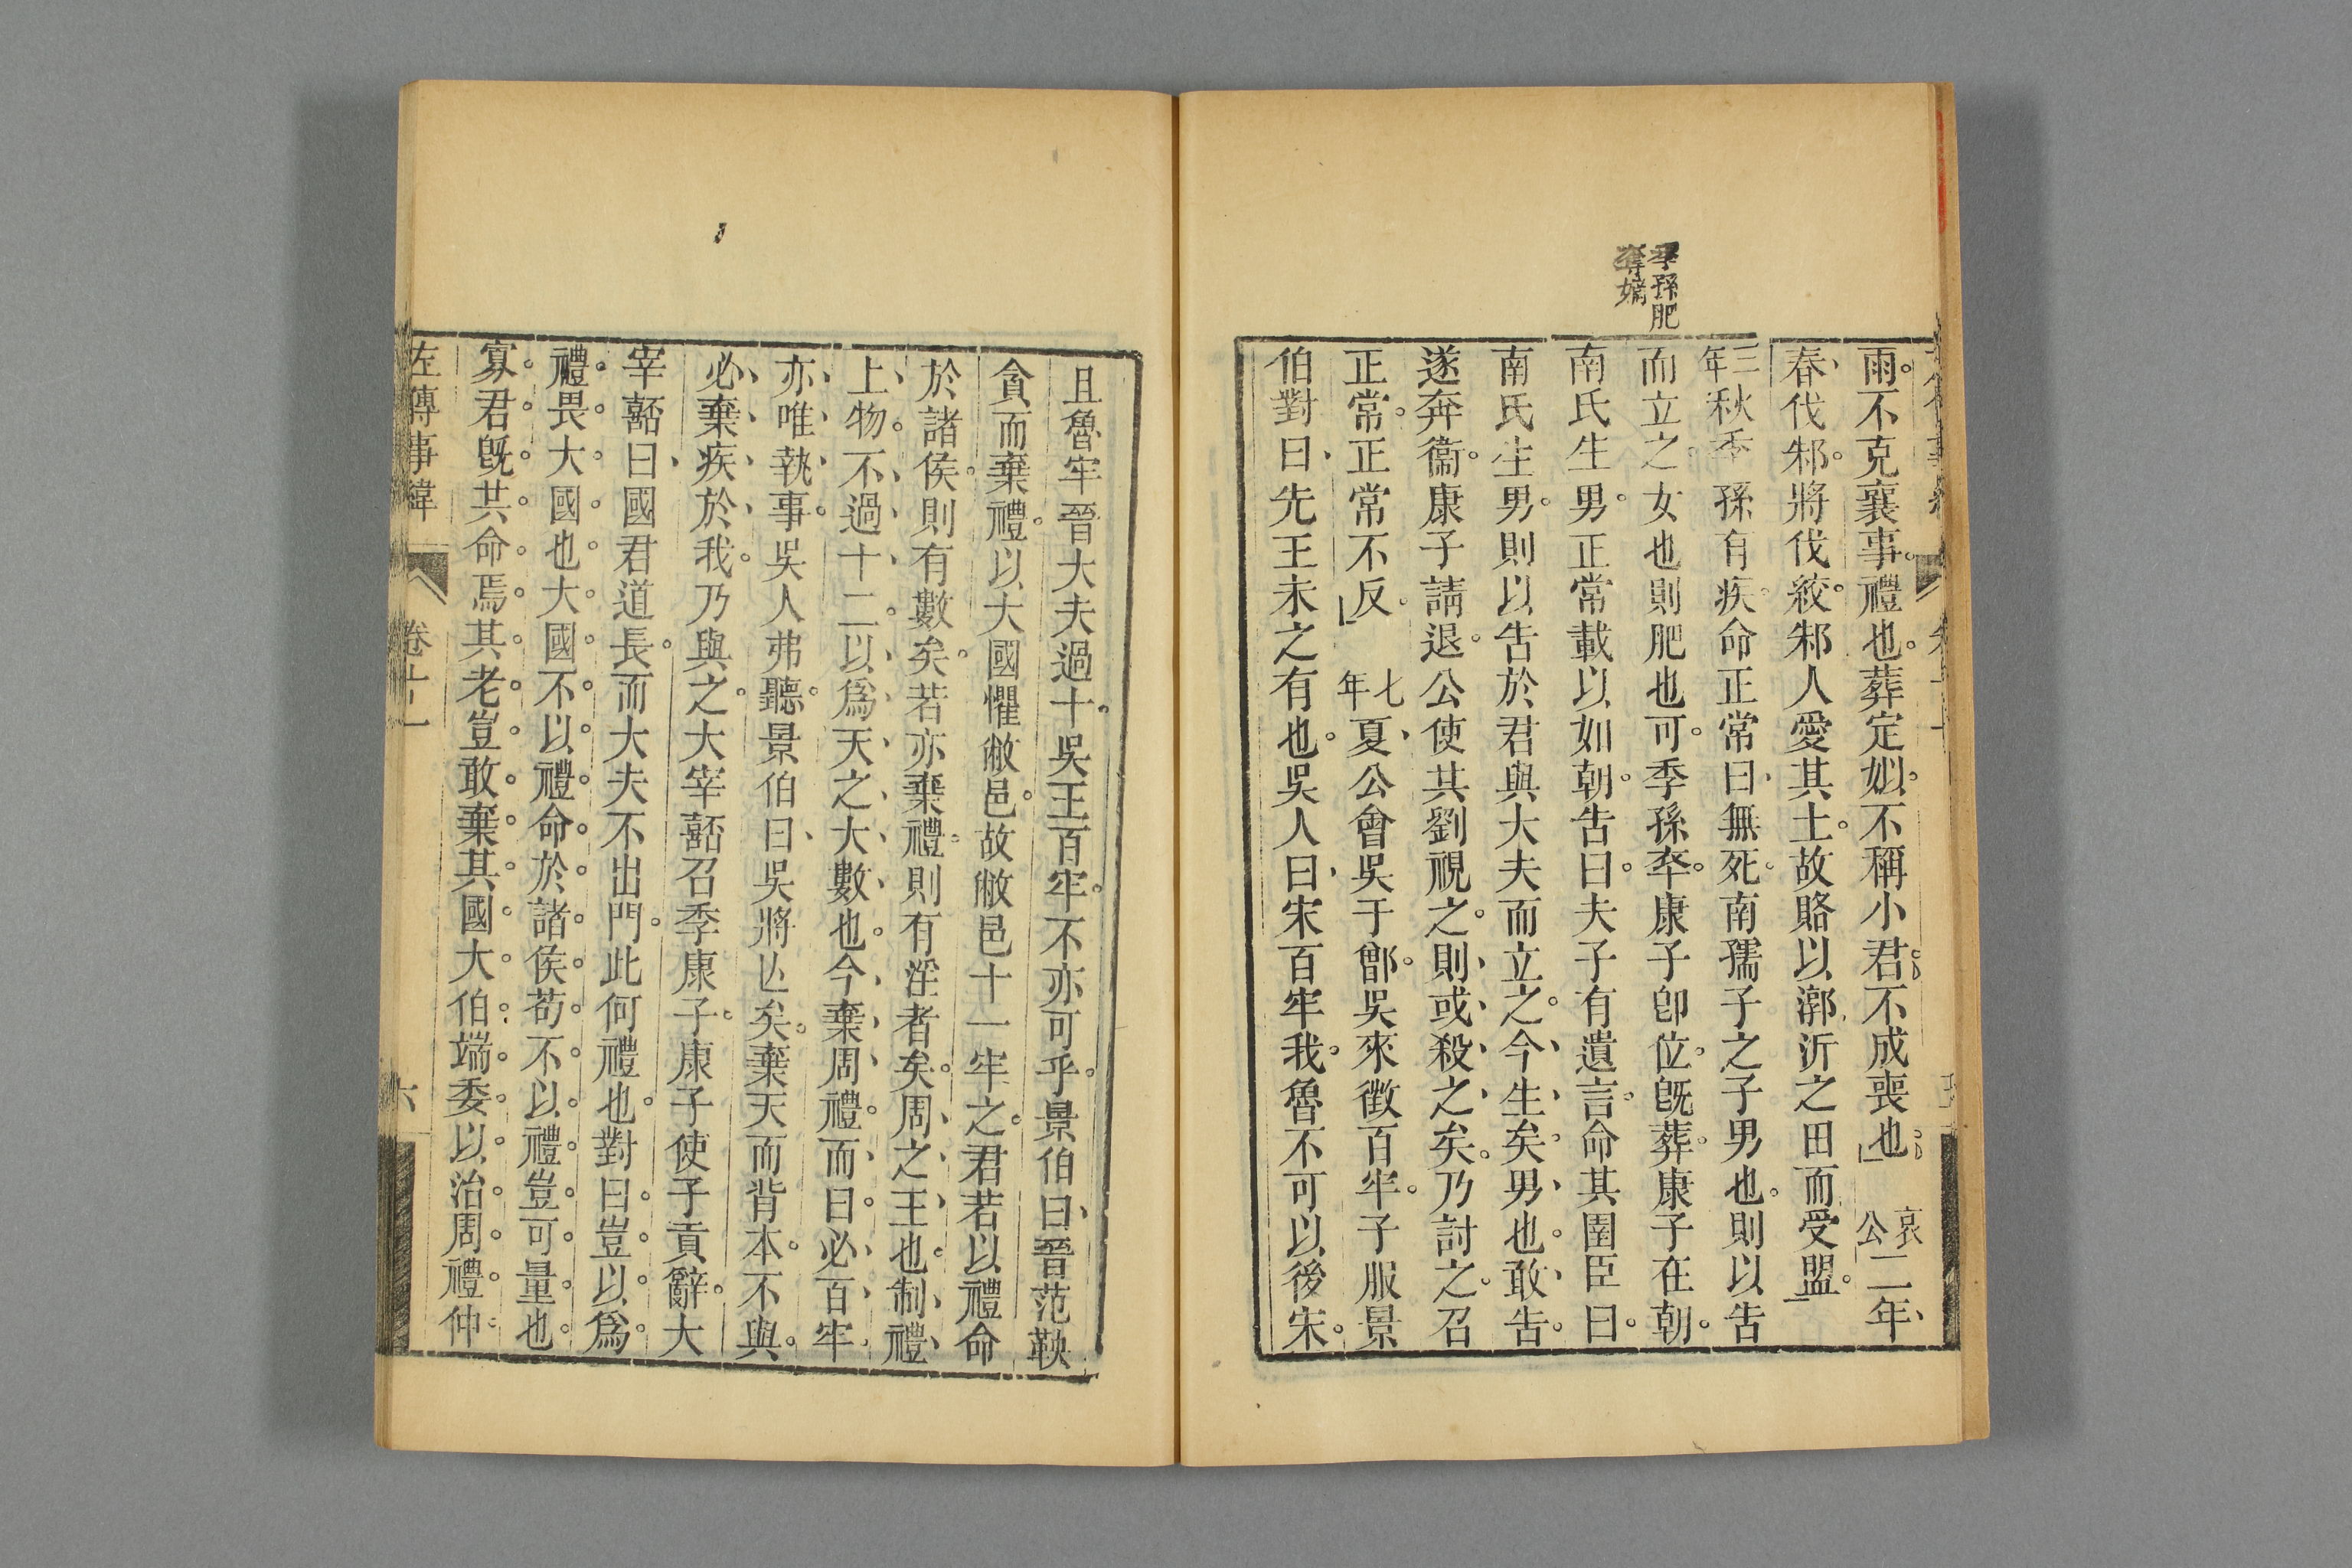 季孫肥
奪嫡
雨不克襄事禮也葬定姒不稱小君不成喪也 哀公二年
春伐邾將伐絞邾人愛其土故賂以漷沂之田而受盟
三年秋季孫有疾命正常曰無死南孺子之子男也則以告
而立之女也則肥也可季孫卒康子卽位旣葬康子在朝
南氏生男正常載以如朝告曰夫子有遺言命其圉臣曰
南氏生男則以告於君與大夫而立之今生矣男也敢告
遂奔衞康子請退公使其劉視之則或殺之矣乃討之召
正常正常不反 七年夏公會吳于鄫吳來徵百牢子服景
伯對曰先王未之有也吳人曰宋百牢我魯不可以後宋
且魯牢晉大夫過十吳王百牢不亦可乎景伯曰晉范鞅
貪而棄禮以大國懼敝邑故敝邑十一牢之君若以禮命
於諸侯則有數矣若亦棄禮則有淫者矣周之王也制禮
上物不過十二以爲天之大數也今棄周禮而曰必百牢
亦唯執事吳人弗聽景伯曰吳將亾矣棄天而背本不與
必棄疾於我乃與之大宰嚭召季康子康子使子貢辭大
宰嚭曰國君道長而大夫不出門此何禮也對曰豈以爲
禮畏大國也大國不以禮命於諸侯苟不以禮豈可量也
寡君旣共命焉其老豈敢棄其國大伯端委以治周禮仲
左傳事緯 卷十一 六